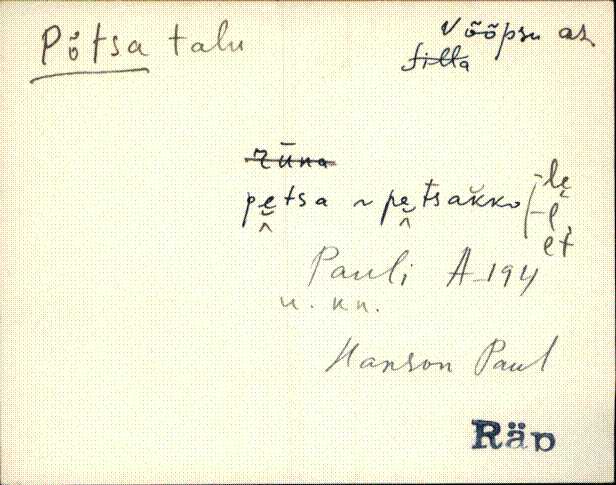 Põtsa talu
Võõpsu as
silla
rūna
pe̮tsa ~ pe̮tsakko
-le
-l
et
Pauli A-194
u. kn.
Hanson Paul
Räp